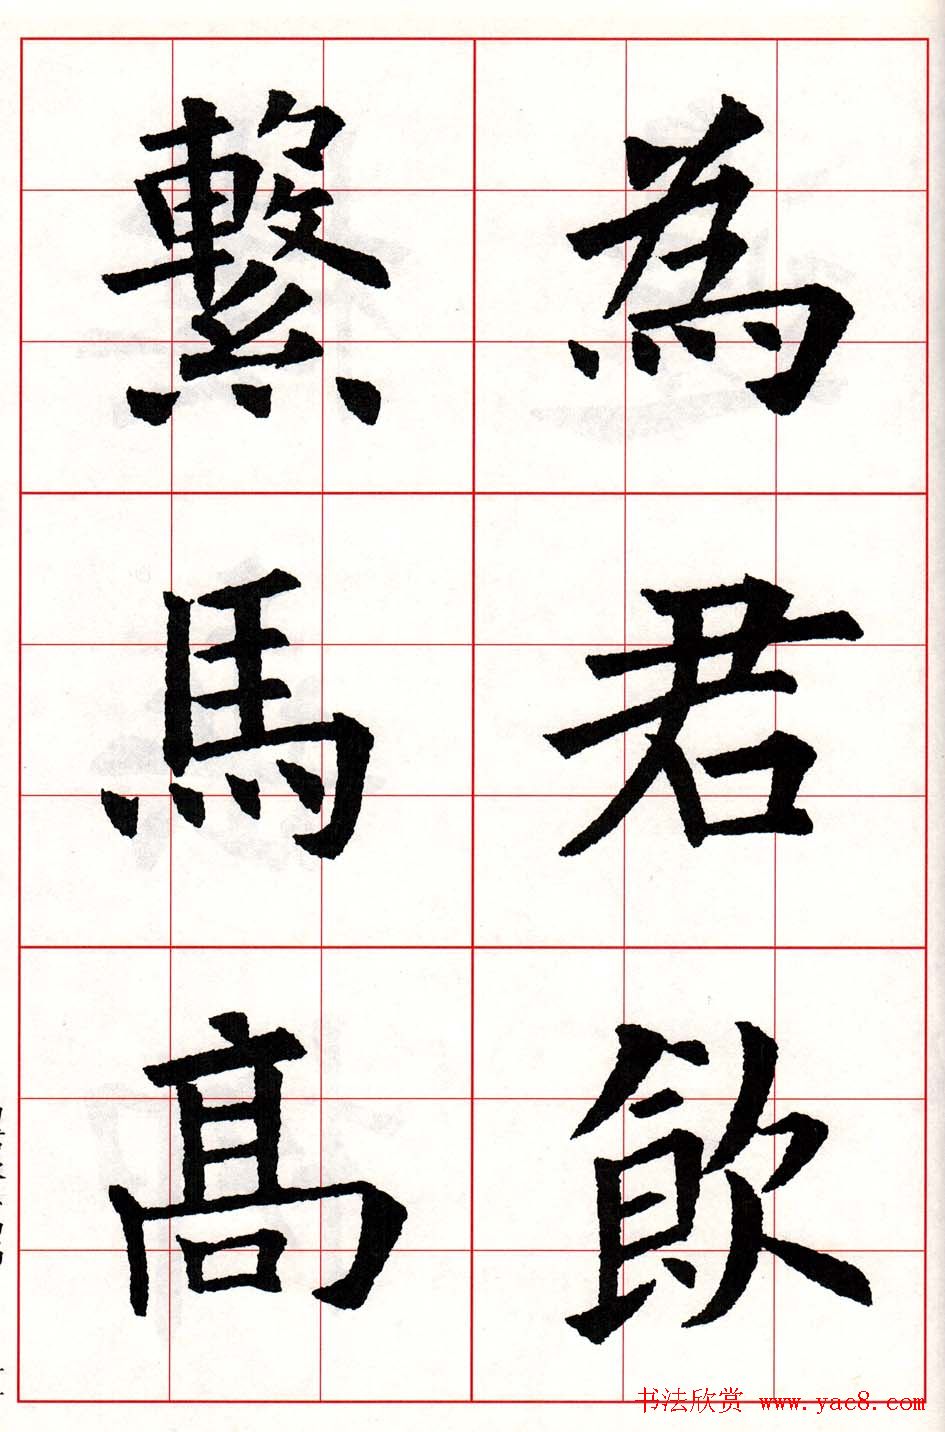 為君飲
繫馬高
书法欣赏 www.yac8.com